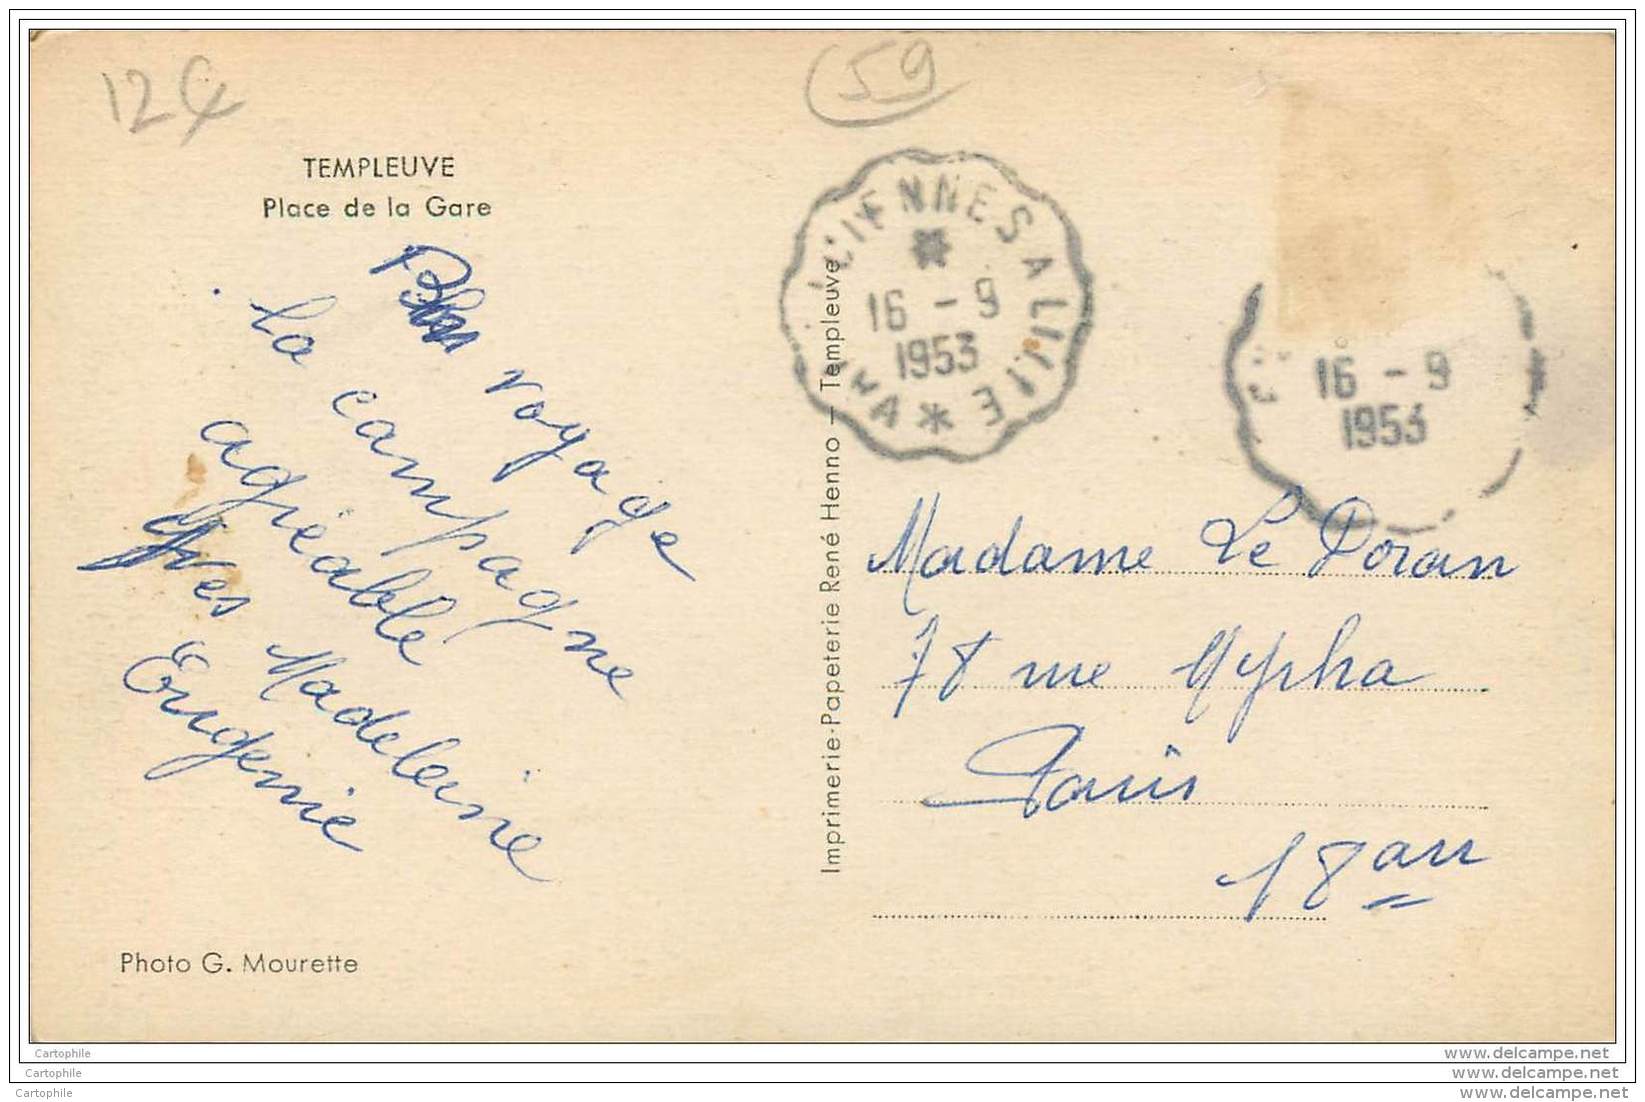 12€
59
TEMPLEUVE
Place de la Gare
Bon voyage
la campagne
agréable
Yves Madeleine
Eugenie
Photo G. Mourette
Imprimerie-Papeterie René Henno — Templeuve
VALENCIENNES A LILLE
16 - 9
1953
16 - 9
1953
Madame Le Doran
78 rue Mypha
Paris
18 arr
Cartophile
Cartophile
Cartophile
www.delcampe.net
www.delcampe.net
www.delcampe.net